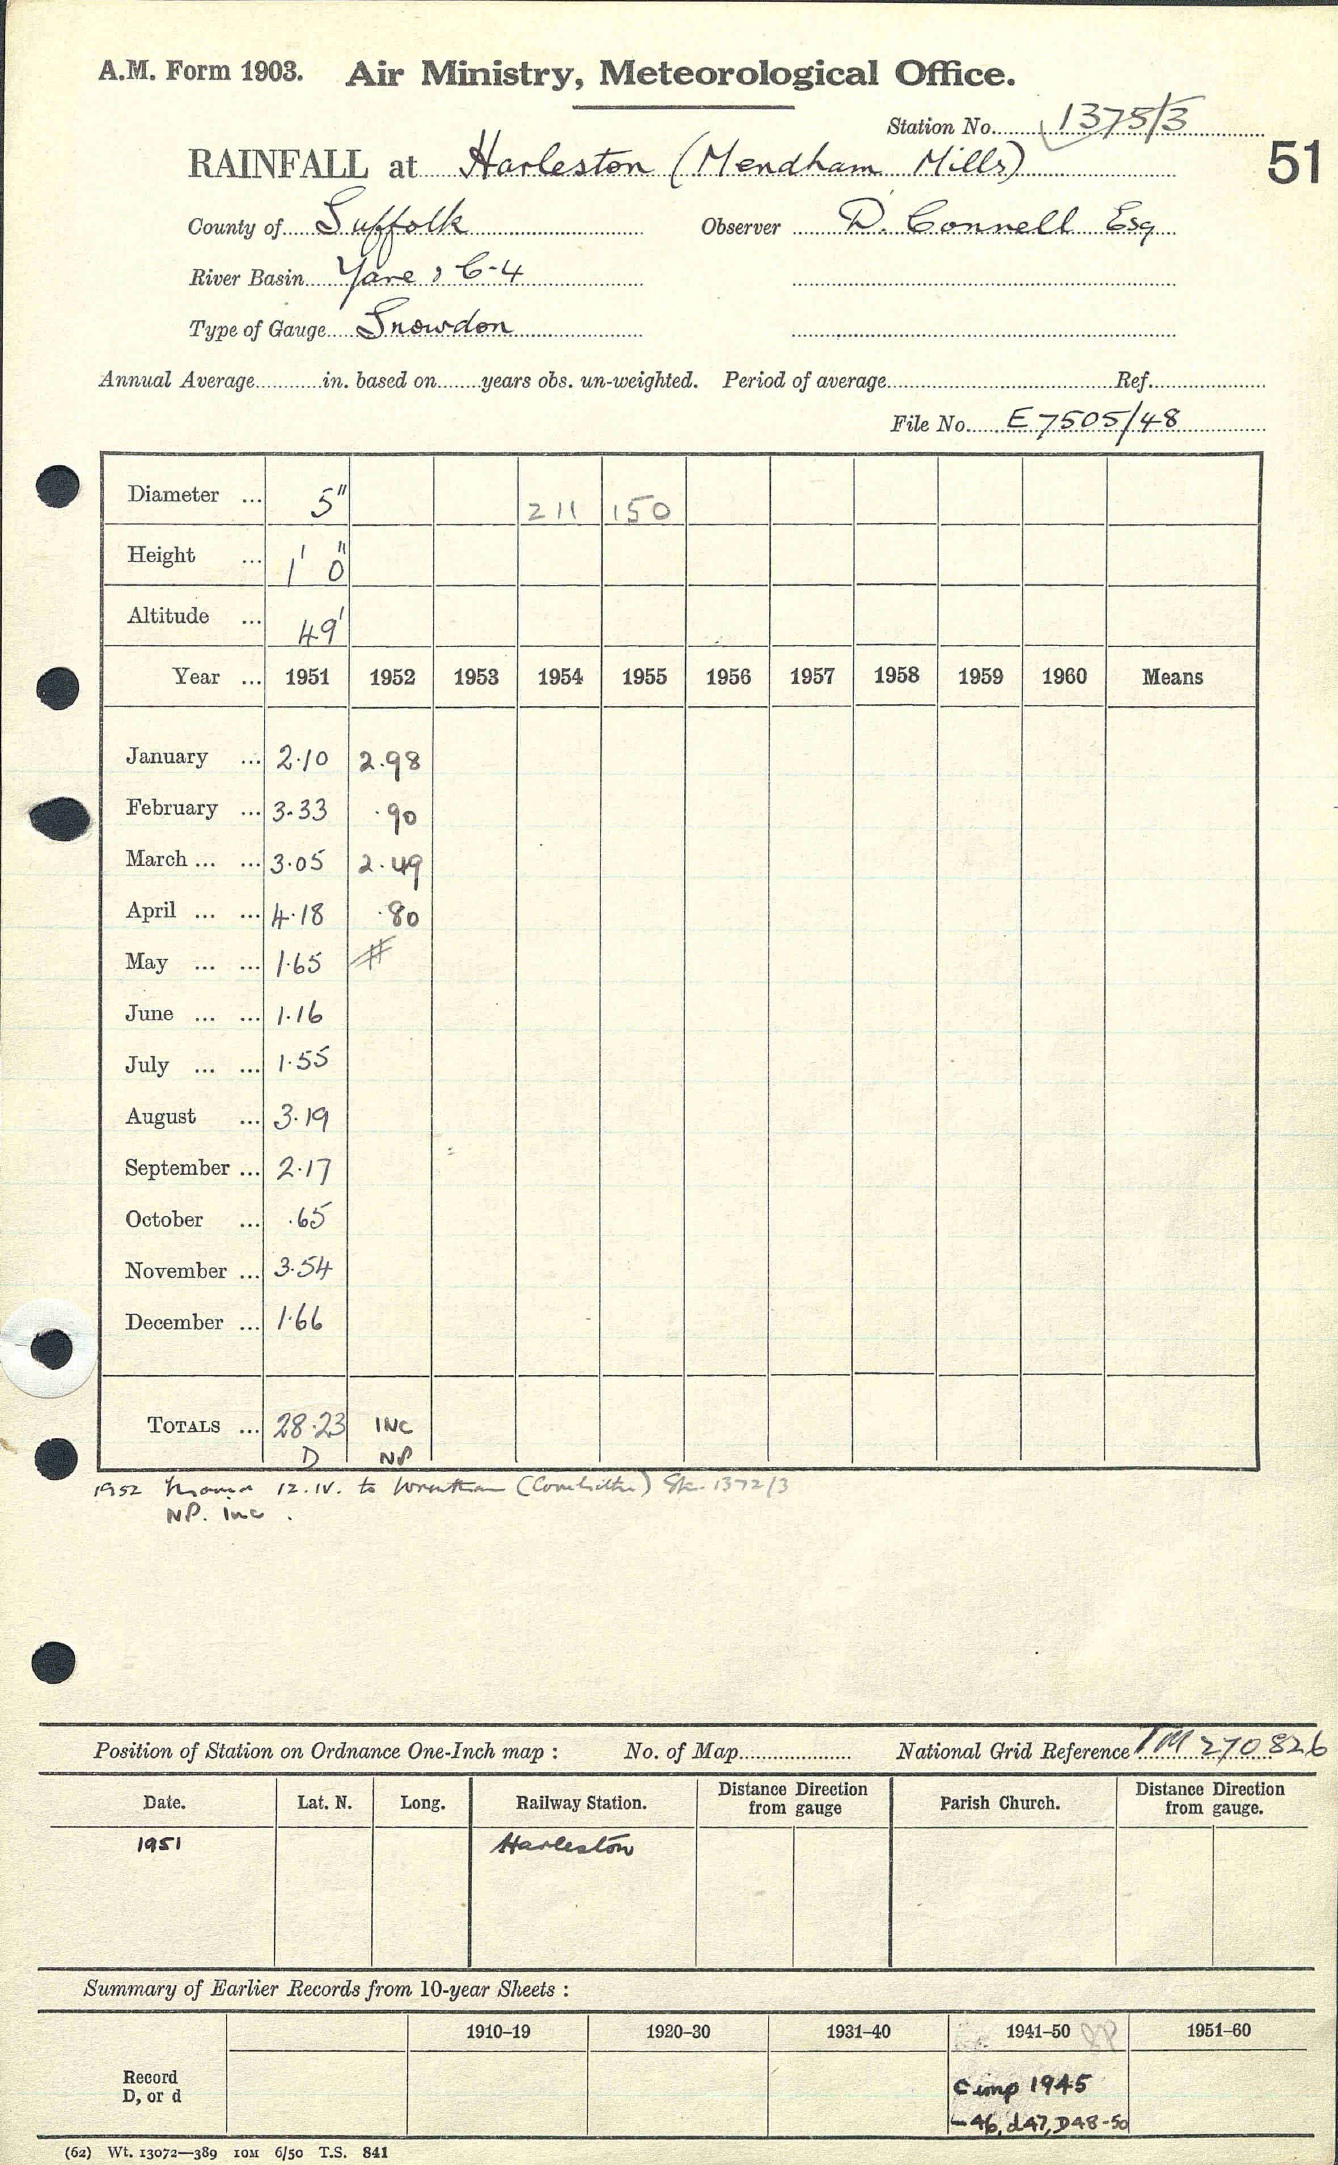 A.M. Form 1903. Air Ministry, Meteorological Office.
Station No. 1375/3
RAINFALL at Harleston (Mendham Mills)
51
County of Suffolk Observer D. Connell Esq
River Basin Yare, C-4
Type of Gauge Snowdon
Annual Average in. based on years obs. un-weighted. Period of average Ref.
File No. E7505/48
Diameter ... 5" 211 150
Height ... 1' 0"
Altitude ... 49'
Year ... 1951 1952 1953 1954 1955 1956 1957 1958 1959 1960 Means
January ... 2.10 2.98
February ... 3.33 .90
March ... ... 3.05 2.49
April ... ... 4.18 .80
May ... ... 1.65 #
June ... ... 1.16
July ... ... 1.55
August ... 3.19
September ... 2.17
October ... .65
November ... 3.54
December ... 1.66
TOTALS ... 28.23 INC
D NP
1952 12.IV. to Stn. 1372/3
NP. Inc.
Position of Station on Ordnance One-Inch map : No. of Map National Grid Reference TM 270826
Date. Lat. N. Long. Railway Station. Distance Direction from gauge Parish Church. Distance Direction from gauge.
1951 Harleston
Summary of Earlier Records from 10-year Sheets :
1910–19 1920–30 1931–40 1941–50 1951–60
Record
D, or d
Comp 1945
-46, d47, D48-50
(62) Wt. 13072—389 10M 6/50 T.S. 841